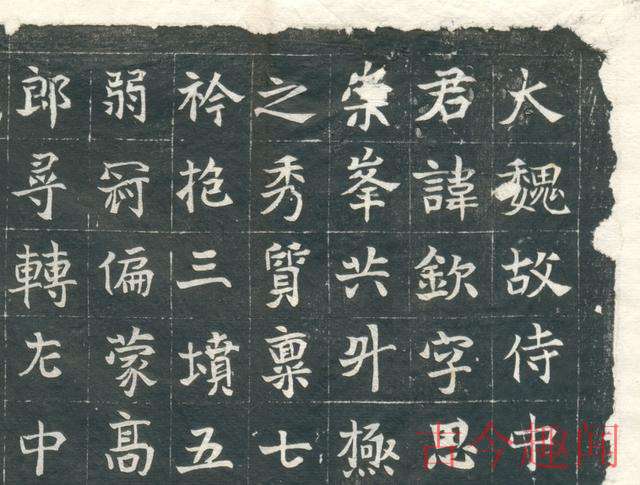 大魏故侍中
君諱欽字思
崇峯共升極
之秀質稟七
衿抱三墳五
弱冠偏蒙高
郎尋轉左中
古今趣闻